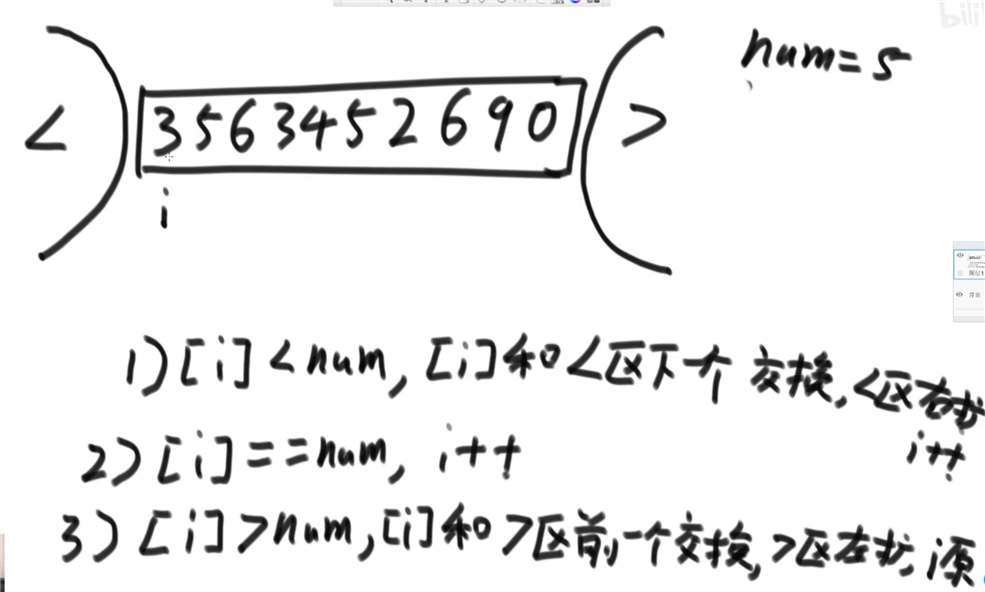 bili
num=5
< 3563452690 >
i
1) [i]<num, [i]和<区下一个 交换, <区右扩
i++
2) [i]==num, i++
3) [i]>num, [i]和>区前一个交换, >区左扩, i原